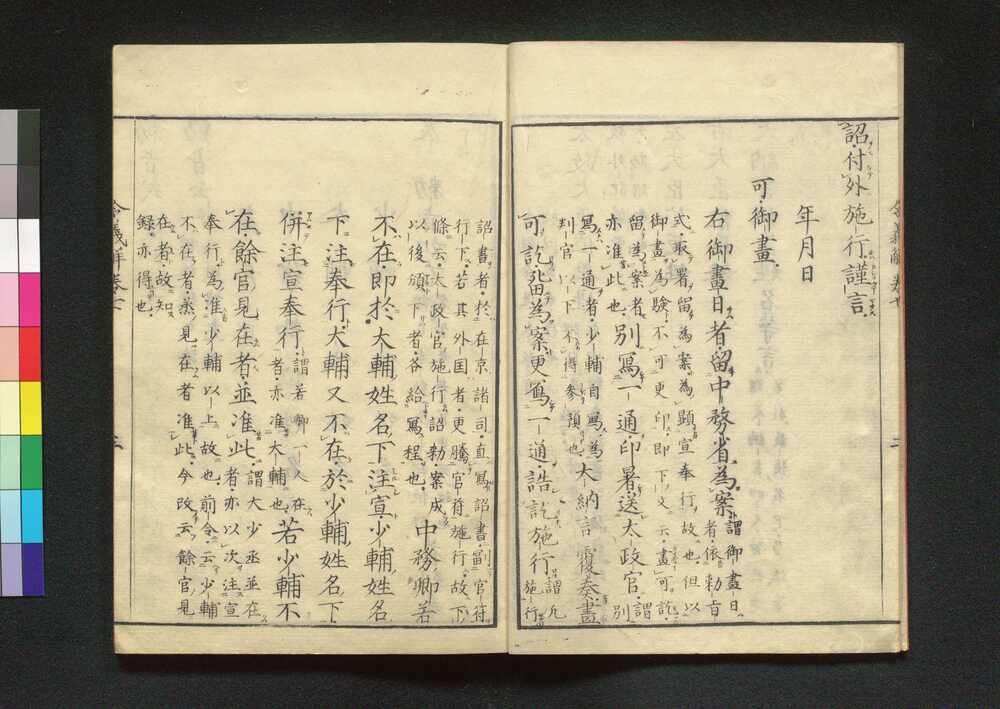 詔付外施行謹言
年月日
可御畫
右御畫日者留中務省為案
謂御畫日
者依勅旨
式取署留為案為顯宣奉行故也但以
御畫為驗不可更印即下文云畫可訖
留為案者
亦准此也
別寫一通印署送太政官
謂別
寫一通者少輔自寫為
判官以下不得參預也
大納言覆奏畫
可訖留為案更寫一通誥訖施行
謂凡
施行
詔書者於在京諸司直寫詔書副官符
行下若其外国者更騰官符施行故下
條云太政官施行詔勅案成
以後頒下者各給寫程也
中務卿若
不在即於大輔姓名下注宣少輔姓名
下注奉行大輔又不在於少輔姓名下
併注宣奉行
謂若卿一人在
者亦准大輔也
若少輔不
在餘官見在者並准此
謂大少丞並在
者亦以次注宣
奉行為准少輔以上故也前令云少輔
不在者丞見在者准此今改云餘官見
在者故知
録亦得也
令義解卷七
三